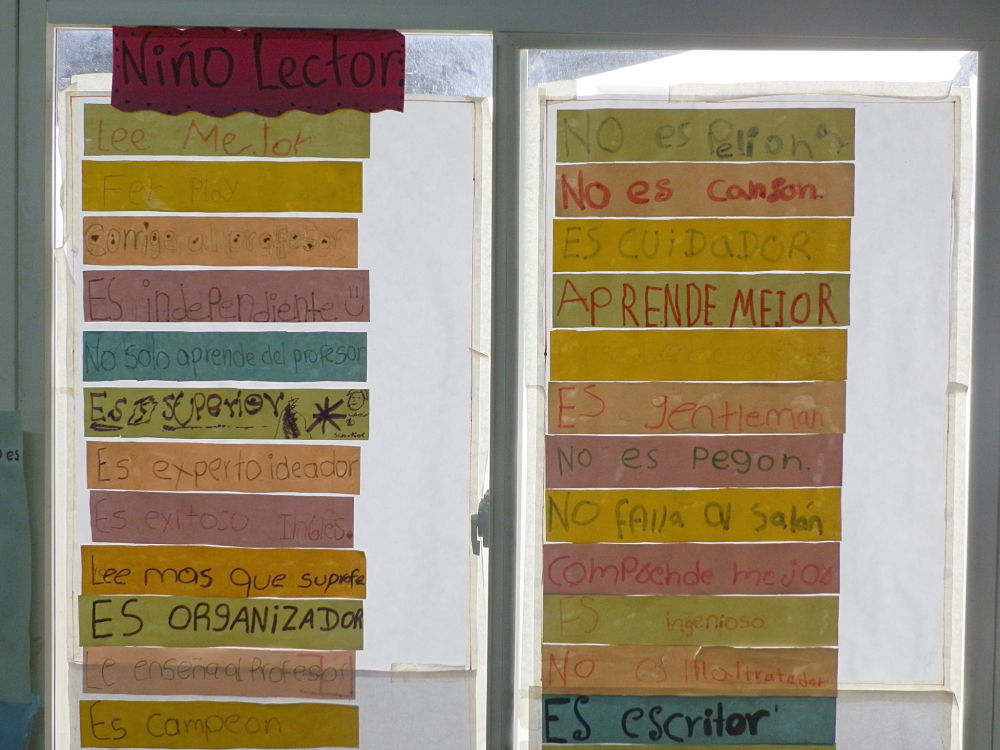 Niño Lector
Lee Mejor
Fer Play
Corrige al profesor
ES independiente
No solo aprende del profesor
Es superior
Es experto ideador
Es exitoso Inglés.
Lee mas que su profe
ES ORGANIZADOR
Le enseña al Profesor
Es campeon
NO es Pelion
No es canson.
ES CUiDaDOR
APRENDE MEJOR
ES gentleman
No es pegon.
NO fAlla al Salón
comprende mejor
ES ingenioso
No es Maltratador
ES escritor
es